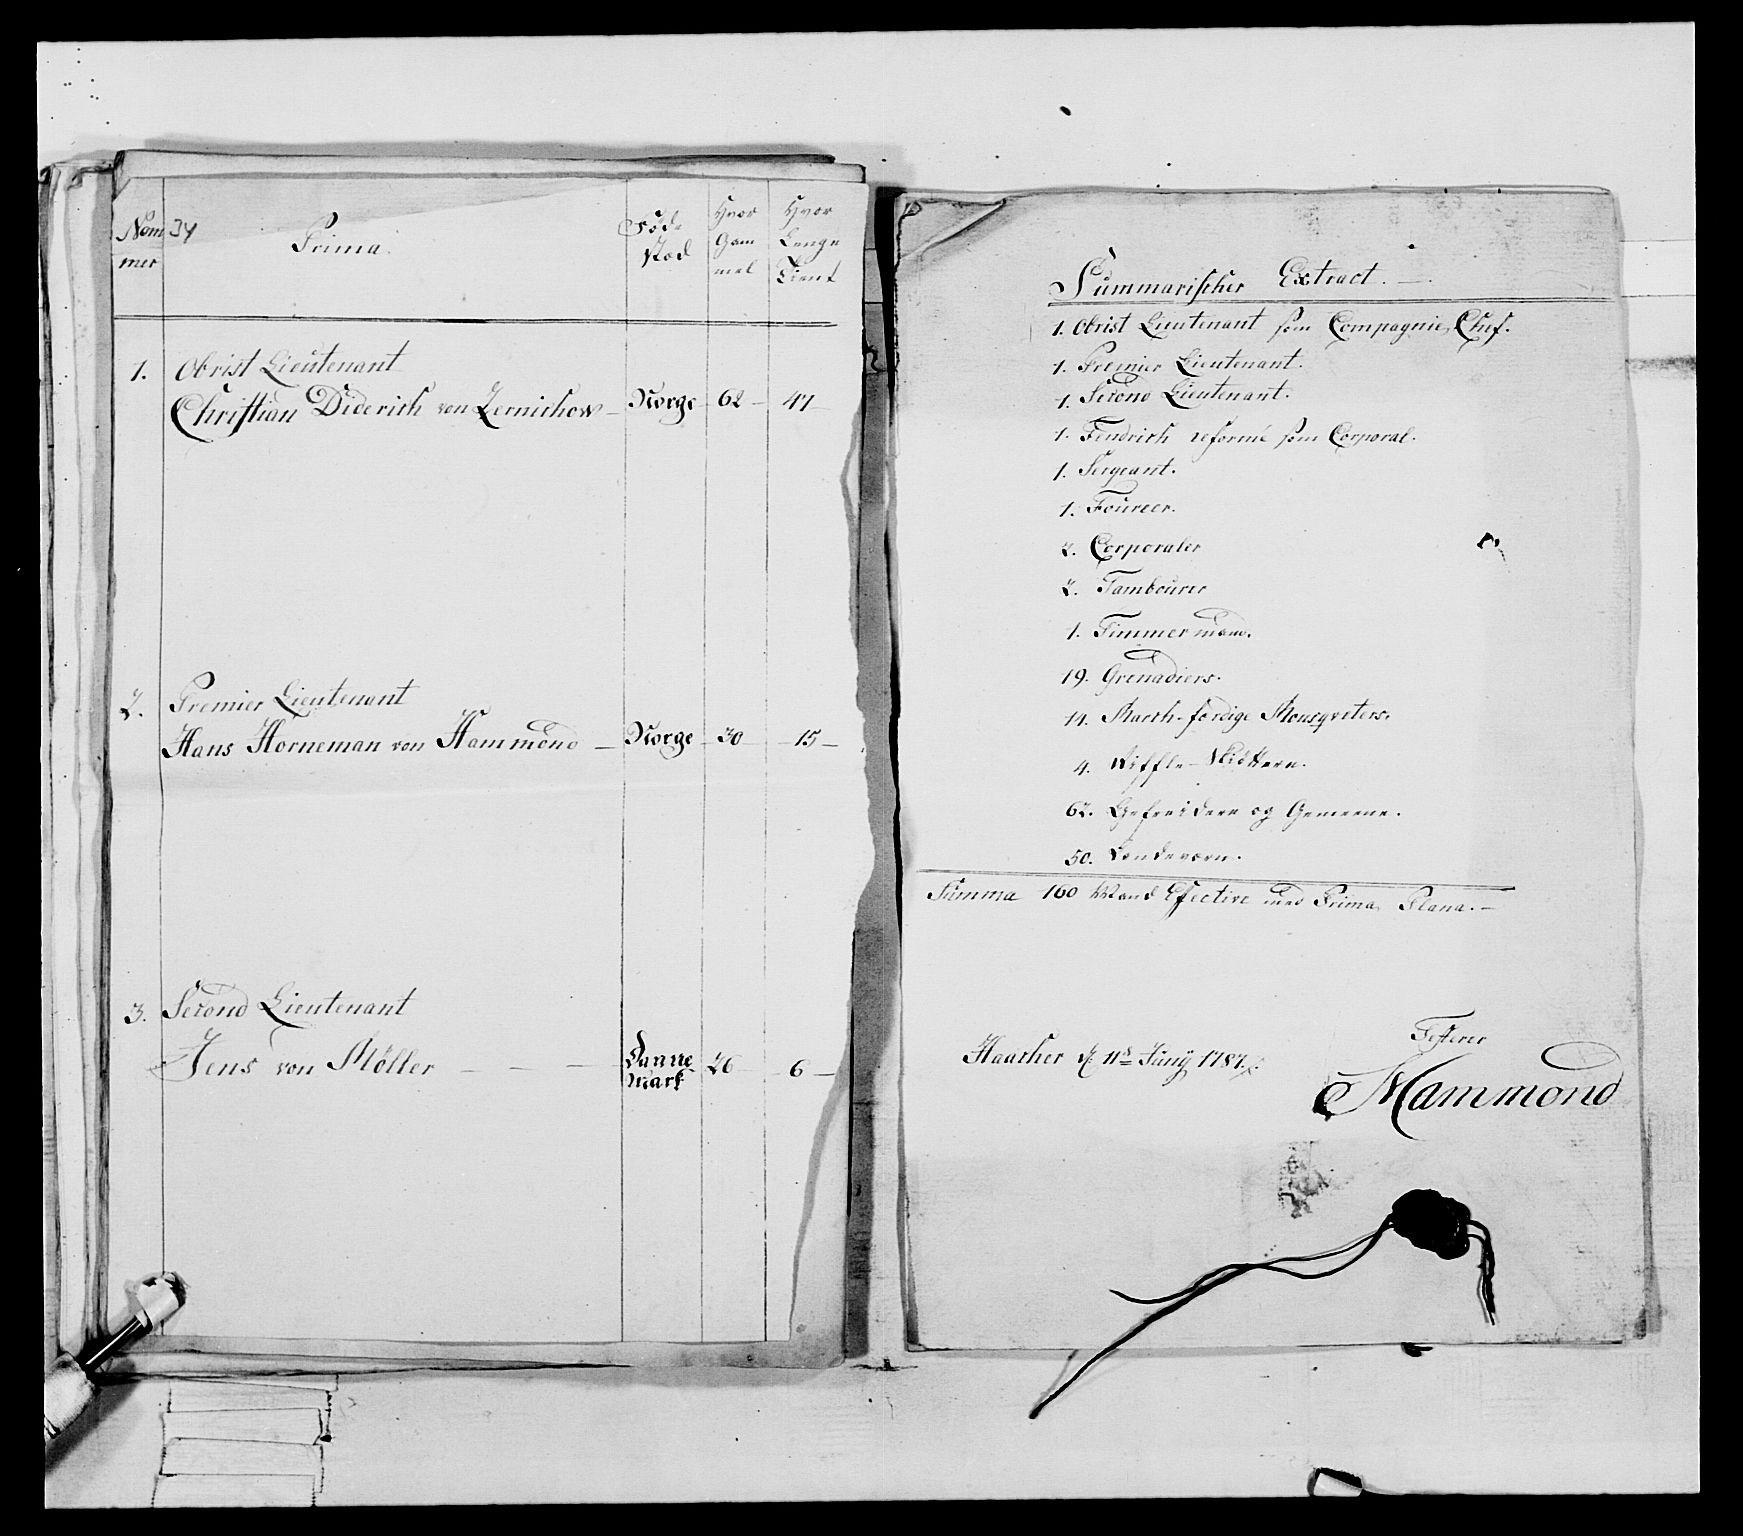 Nom 34
mer
Prima.
Föde
Stæd
Hvor
Gam
mel
Hvor
Lenge
Tient
1. Obrist Lieutenant
Christian Diderich von Zernichow – Norge 62 – 47 –
2. Premier Lieutenant
Hans Horneman von Hammond – Norge – 30 – 15 –
3. Second Lieutenant
Jens von Möller – – – Danne 26 – 6 –
Mark
Summarischer Extract. –.
1. Obrist Lieutenant som Compagnie Chef.
1. Premier Lieutenant.
1. Second Lieutenant.
1. Fendrich reformé som Corporal.
1. Sergeant.
1. Foureer.
2. Corporaler
2. Tambourer
1. Timmermand.
19. Grenadiers.
14. March-færdige Mousqveters.
4. Riffle-Skÿttere.
62. Gefreidere og Gemeene.
50. Landeværn.
Summa 160 Mand Efective med Prima Plana. –
Haacher d. 11te Junÿ 1787.
Testerer
Hammond